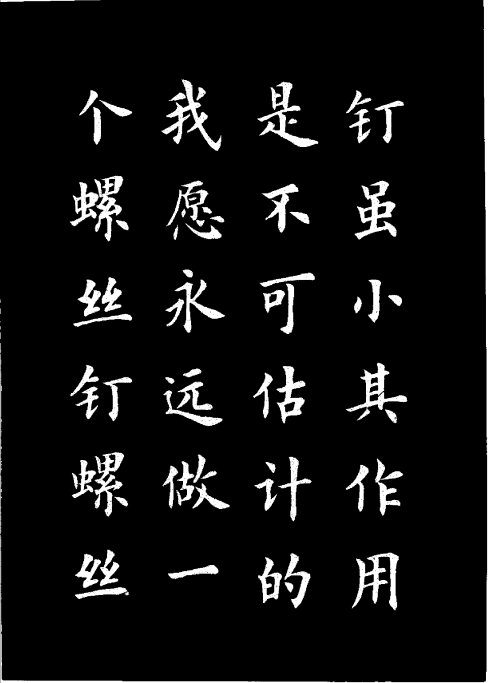 钉虽小其作用
是不可估计的
我愿永远做一
个螺丝钉螺丝